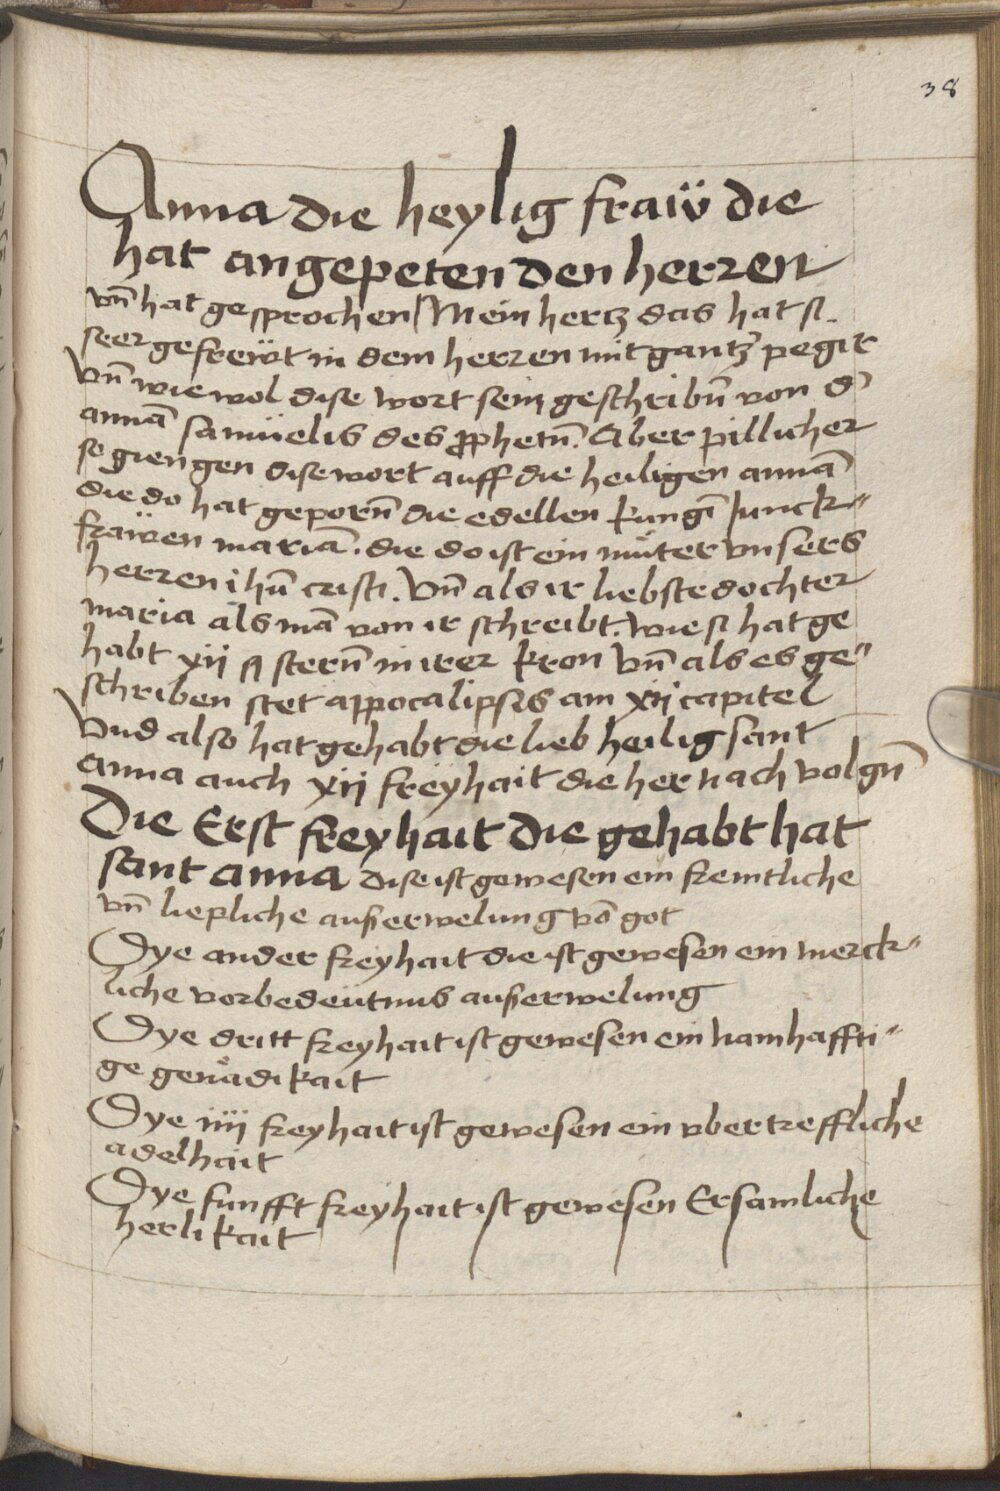 38
Anna die heylig fraẅ die
hat angepeten den herren
vn̄ hat gesprochen / Mein hertz das hat si
seer gefreẅt in dem herren mit gantz' pegir
Vn̄ wie wol dise wort sein geschribn̄ von d'
annā samüelis des ꝓphetn̄. Aber pillicher
se giengen dise wort auff die heiligen annā
die do hat geporn̄ die edellen kungī Junck-
fraẅen mariā. die do ist ein můter vnsers
herren ihū cristi. Vn̄ als ir liebste dochter
maria als mā von ir schreibt. wie si hat ge
habt xij stern̄ in irer kron vn̄ als es ge-
schriben stet appocalipsis am xij capitel
Vnd also hat gehabt die lieb heilig sant
anna auch xij freyhait die her nach volgn̄
Die Erst freyhait die gehabt hat
sant anna dise ist gewesen ein frewntliche
vn̄ liepliche ausserwelung vō got
Dye ander freyhait die ist gewesen ein merck-
liche vorbedeütnus ausserwelung
Dye dritt freyhait ist gewesen ein namhaffti-
ge genådikait
Dye iiij freyhait ist gewesen ein vbertreffliche
adelhait
Dye funfft freyhait ist gewesen Ersamliche
herlikait